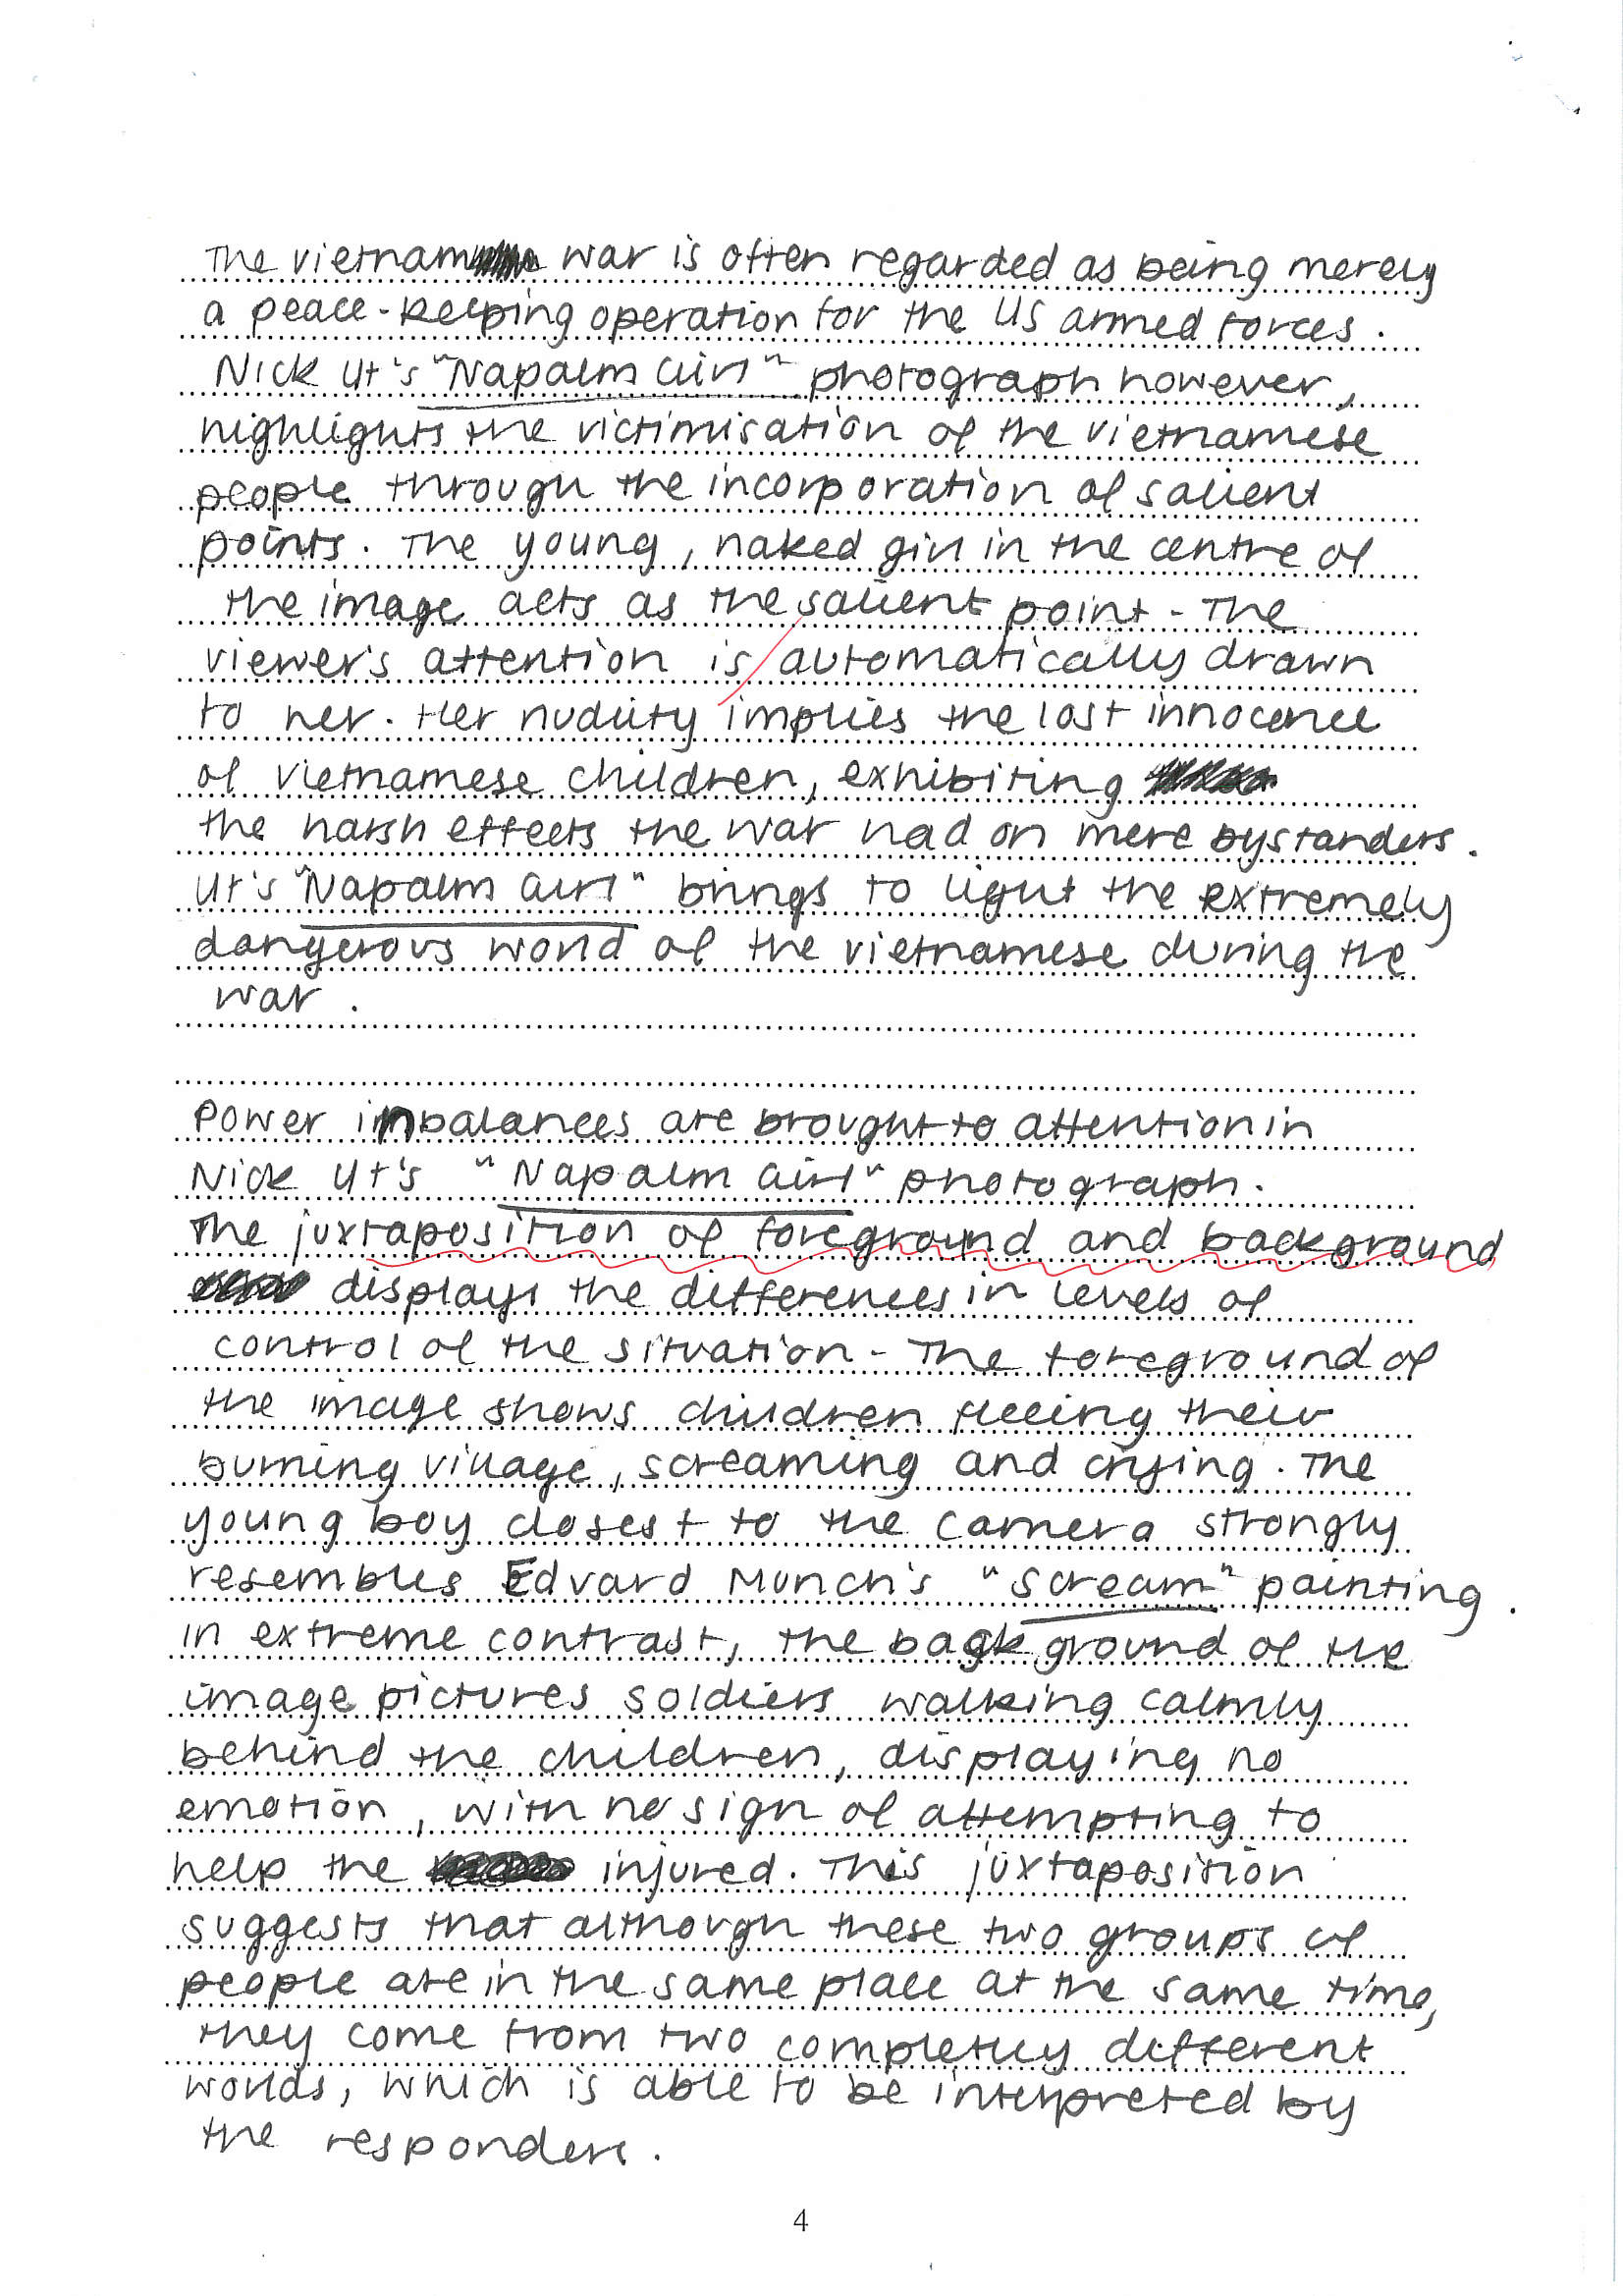 The vietnam war is often regarded as being merely
a peace-keeping operation for the US armed forces.
Nick Ut's "Napalm Girl" photograph however,
highlights the victimisation of the vietnamese
people through the incorporation of salient
points. The young, naked girl in the centre of
the image acts as the salient point - The
viewer's attention is automatically drawn
to her. Her nudity implies the lost innocence
of vietnamese children, exhibiting
the harsh effects the war had on mere bystanders.
Ut's "Napalm Girl" brings to light the extremely
dangerous world of the vietnamese during the
war.
Power imbalances are brought to attention in
Nick Ut's "Napalm Girl" photograph.
The juxtaposition of foreground and background
displays the differences in levels of
control of the situation - The foreground of
the image shows children fleeing their
burning village, screaming and crying. The
young boy closest to the camera strongly
resembles Edvard Munch's "Scream" painting.
in extreme contrast, the background of the
image pictures soldiers walking calmly
behind the children, displaying no
emotion, with no sign of attempting to
help the injured. This juxtaposition
suggests that although these two groups of
people are in the same place at the same time,
they come from two completely different
worlds, which is able to be interpreted by
the responders.
4